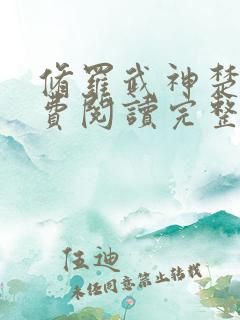 脩羅武神楚
費閱讀完整
伍迪
未任同意禁止轉載